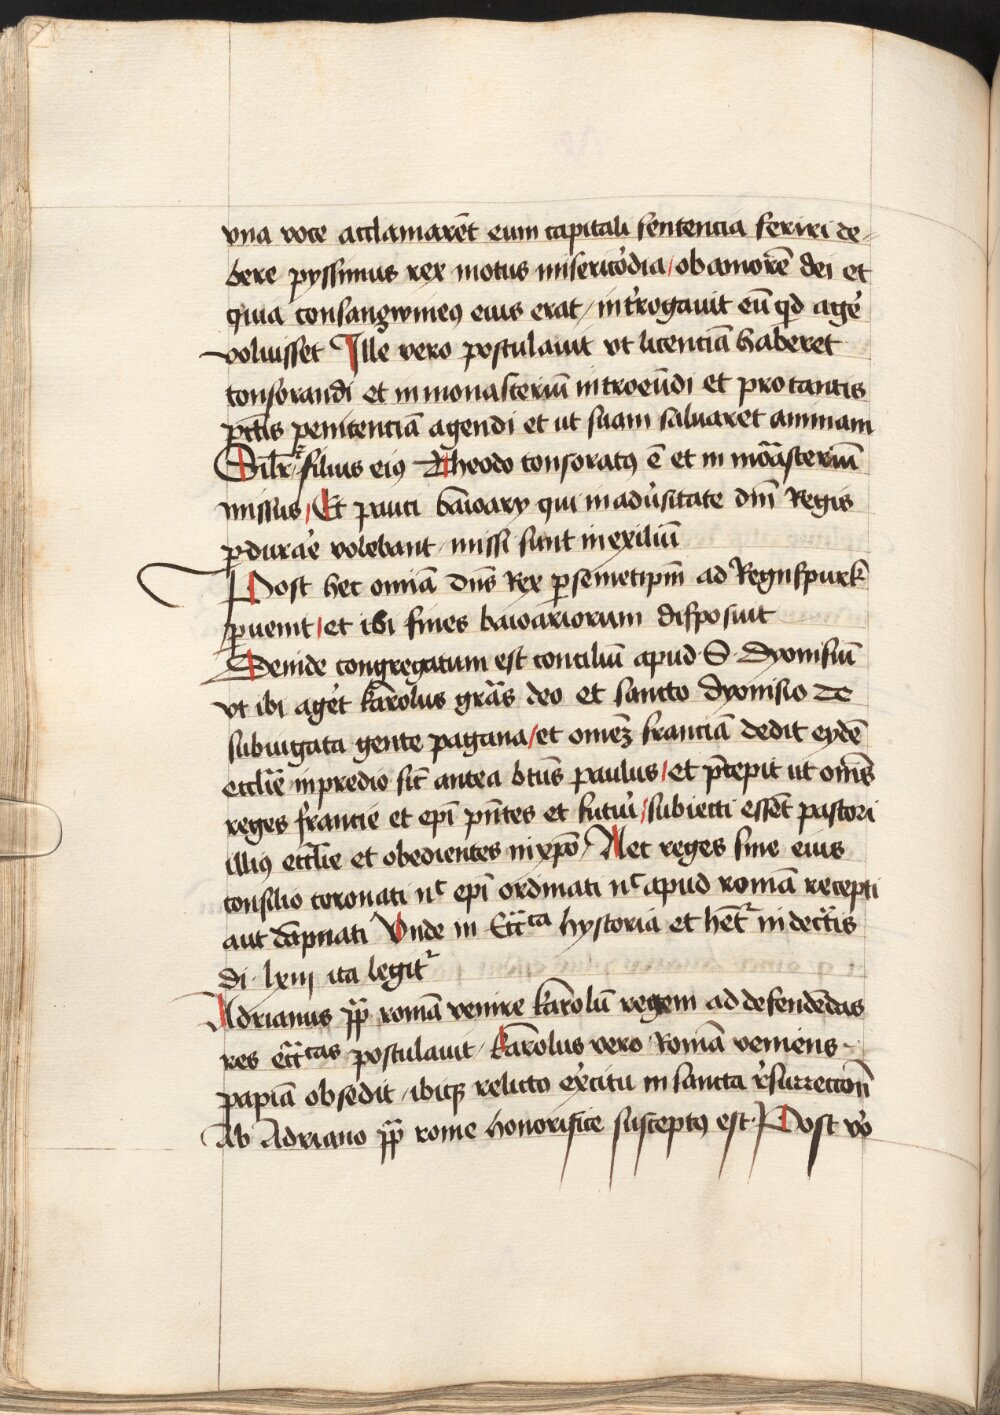 vna voce acclamarēt eum capitali sentencia feriri de-
bere pyssimus rex motus misericōdia / ob amorē dei et
quia consangwineꝰ eius erat / int̄rogauit eū qd agē
voluisset Ille vero postulauit vt licenciā haberet
tonsorandi et in monasteriū introeūdi et pro tantis
pctīs penitenciā agendi et ut suam saluaret animam
Silr̄ filius eiꝰ Theodo tonsoratꝰ ē et in moāsteriū
missus / Et pauci bāioary qui in adūsitate dnī Regis
ꝑdurāe volebant / missi sunt in exiliū
Post hec omīa dn̄s Rex ꝑ semetipm̄ ad Regnspurk
ꝑuenit / et ibi fines baioariorum disposuit
Deinde congregatum est conciliū apud S. Dyonisiū
vt ibi aget̄ karolus grās deo et sancto dyonisio de
subiugata gente pagana / et omēꝫ franciā dedit eydē
eccliē in predio sic̄ antea btūs paulus / et p̄cepit ut om̄s
reges francie et epī pn̄tes et futuī / subiecti essēt pastori
illiꝰ eccl̄ie et obedientes in xpō / Nec reges sine eius
consilio coronati nᶜ epī ordinati nᶜ apud romā recepti
aut dāpnati Vnde in Ecc̄ᶜᵃ hystoria et hēt᷑ in decr̄tis
di. lxiij ita legit᷑
Adrianus pp̄ romā venire karolū regem ad defendēdas
res ecc̄ᶜᵃˢ postulauit / karolus vero Romā veniens
papiā obsedit / ibiqꝫ relicto ex̄citu in sancta r̄surreccōn̄
Ab Adriano pp̄ rome honorifice susceptꝰ est Post vō